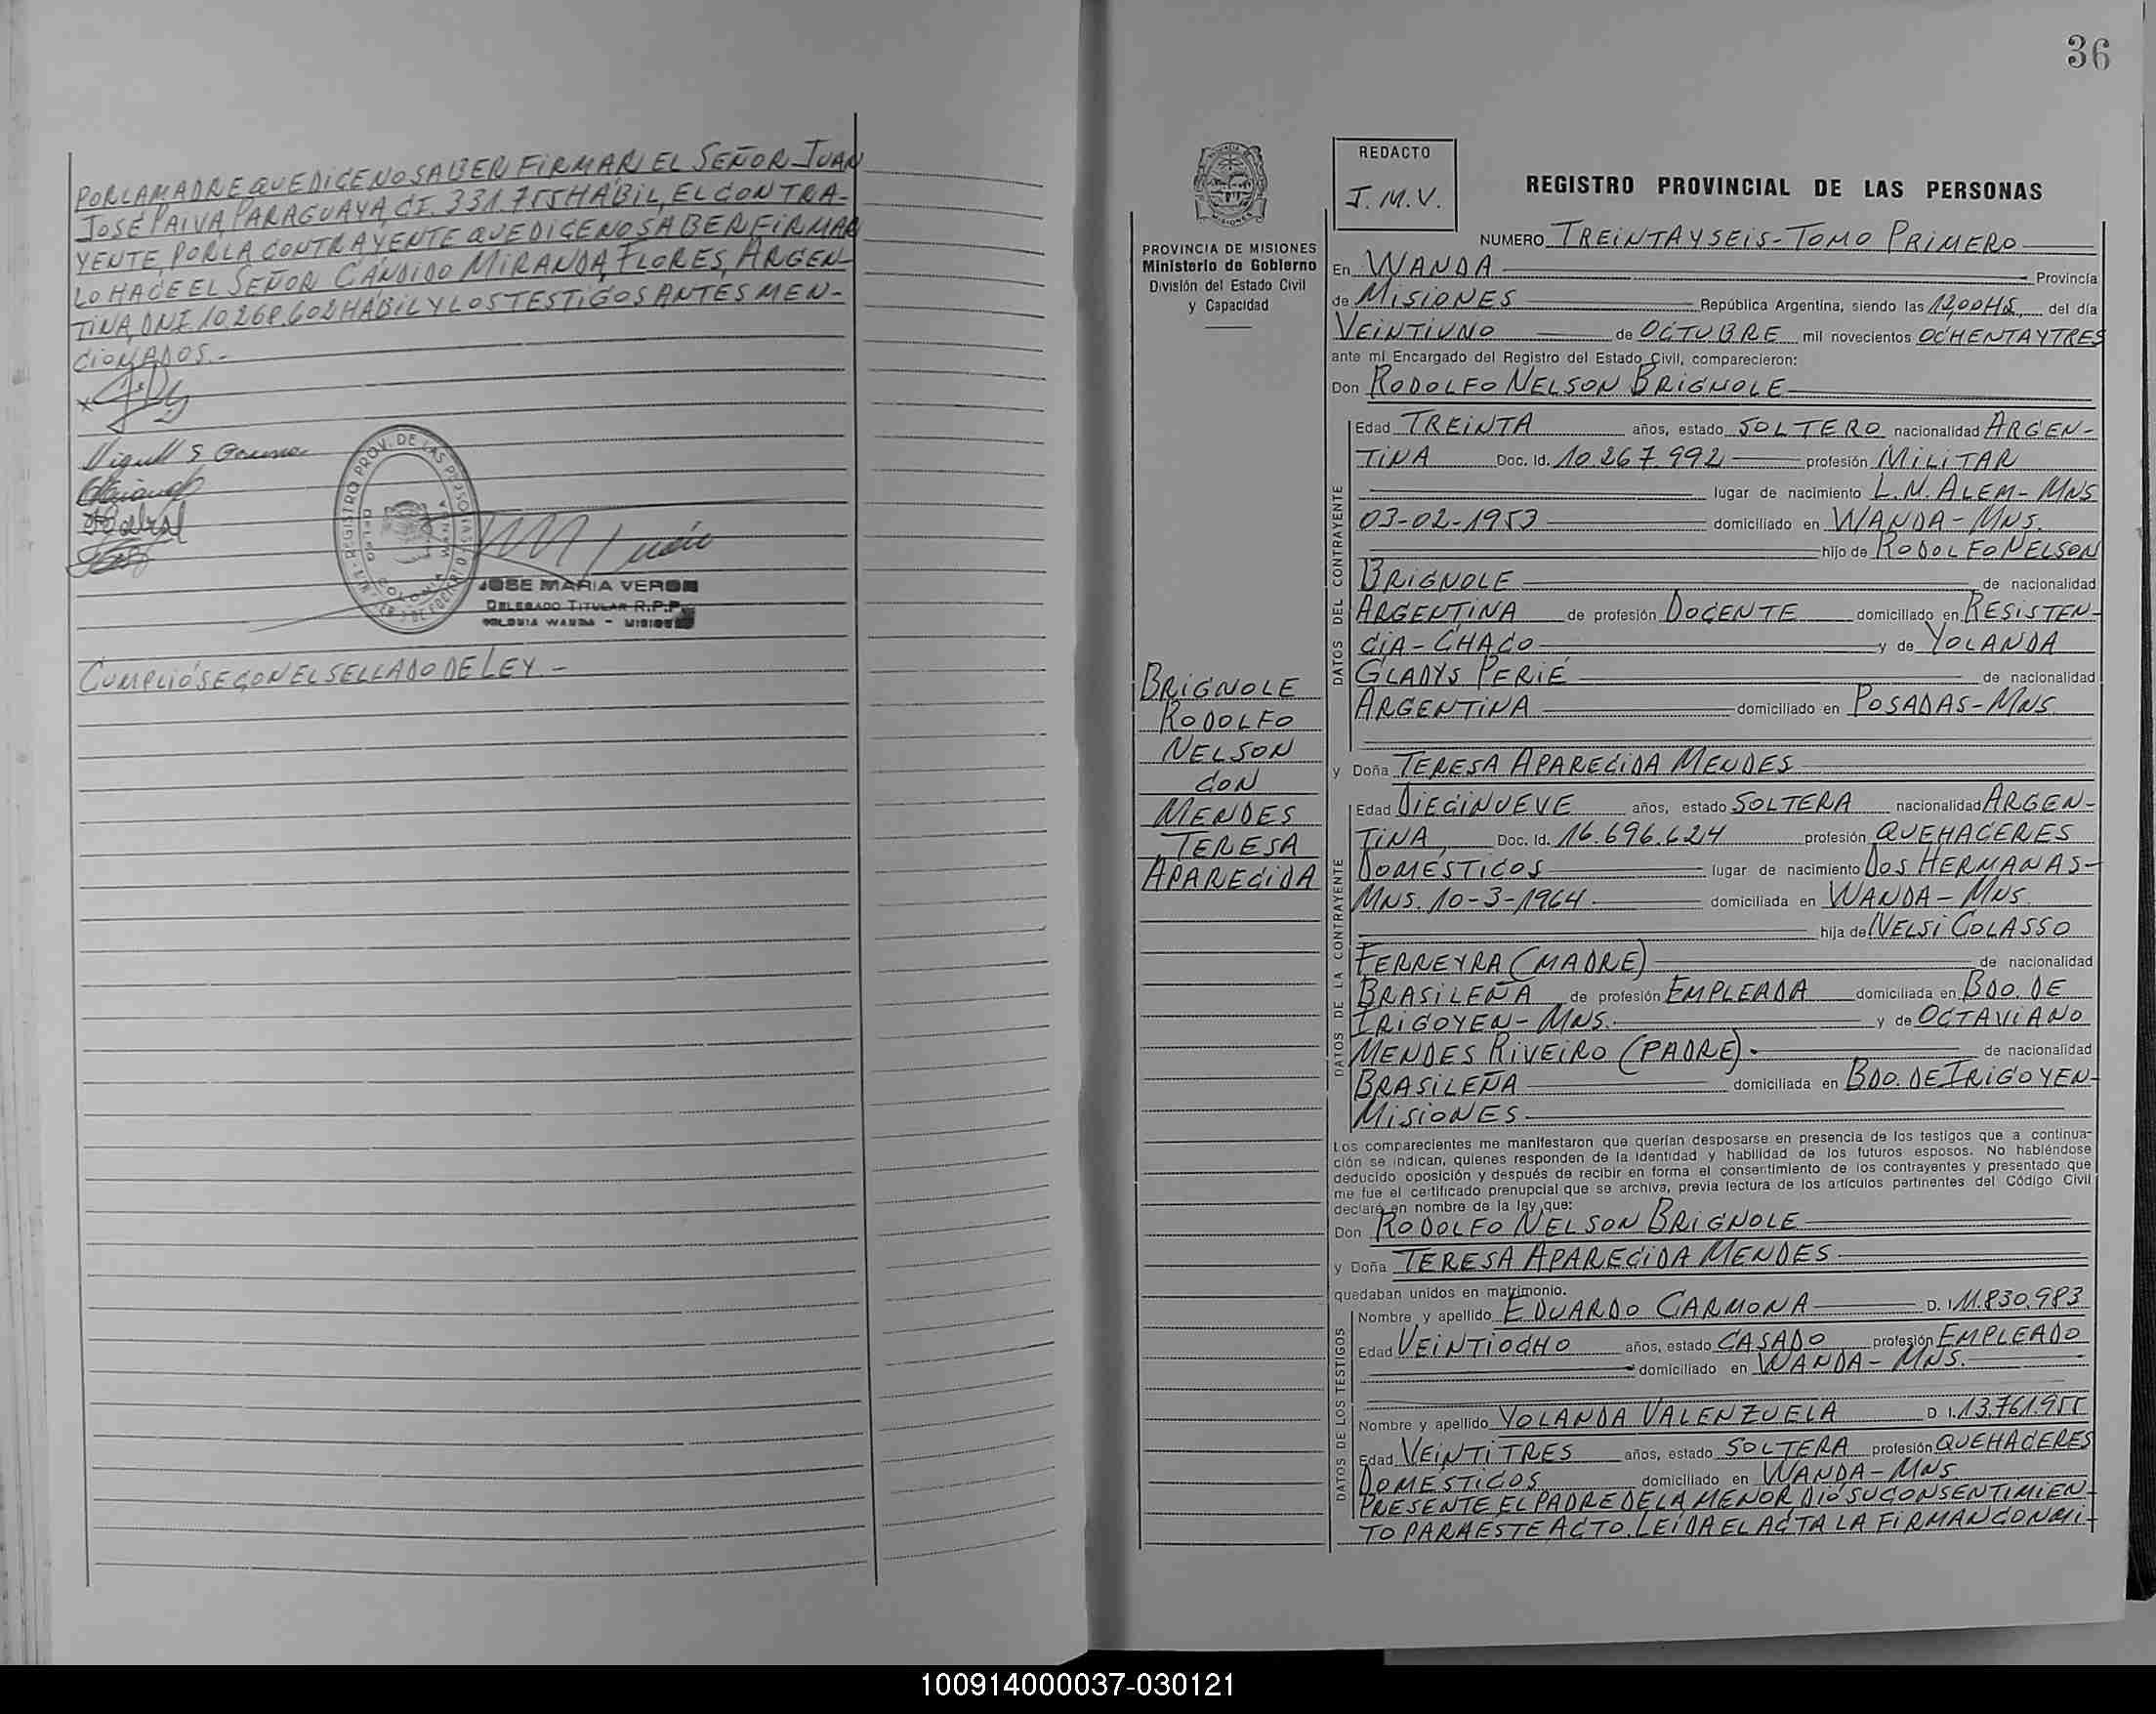 PORLAMADRE QUE DICE NO SABER FIRMAR EL SEÑOR JUAN
JOSÉ PAIVA, PARAGUAYA, CI. 331.755 HÁBIL, EL CONTRA-
YENTE, POR LA CONTRAYENTE QUE DICE NO SABER FIRMAR
LO HACE EL SEÑOR CÁNDIDO MIRANDA FLORES, ARGEN-
TINA, DNI 10.268.602 HÁBIL Y LOS TESTIGOS ANTES MEN-
CIONADOS.-
JOSE MARIA VERON
DELEGADO TITULAR R.P.P.
COLONIA WANDA - MISIONES
CUMPLIÓSE CON EL SELLADO DE LEY.-
36
PROVINCIA DE MISIONES
Ministerio de Gobierno
División del Estado Civil
y Capacidad
BRIGNOLE
RODOLFO
NELSON
CON
MENDES
TERESA
APARECIDA
REDACTO
J.M.V.
REGISTRO PROVINCIAL DE LAS PERSONAS
NUMERO TREINTA Y SEIS - TOMO PRIMERO
En WANDA Provincia
de MISIONES República Argentina, siendo las 12,00 HS. del día
VEINTIUNO de OCTUBRE mil novecientos OCHENTA Y TRES
ante mi Encargado del Registro del Estado Civil, comparecieron:
Don RODOLFO NELSON BRIGNOLE
DATOS DEL CONTRAYENTE
Edad TREINTA años, estado SOLTERO nacionalidad ARGEN-
TINA Doc. Id. 10.267.992 profesión MILITAR
lugar de nacimiento L.N. ALEM - MNS
03-02-1953 domiciliado en WANDA - MNS.
hijo de RODOLFO NELSON
BRIGNOLE de nacionalidad
ARGENTINA de profesión DOCENTE domiciliado en RESISTEN-
CIA - CHACO y de YOLANDA
GLADYS PERIÉ de nacionalidad
ARGENTINA domiciliado en POSADAS - MNS
y Doña TERESA APARECIDA MENDES
DATOS DE LA CONTRAYENTE
Edad DIECINUEVE años, estado SOLTERA nacionalidad ARGEN-
TINA, Doc. Id. 16.696.624 profesión QUEHACERES
DOMÉSTICOS lugar de nacimiento DOS HERMANAS-
MNS. 10-3-1964 domiciliada en WANDA - MNS.
hija de NELSI COLASSO
FERREYRA (MADRE) de nacionalidad
BRASILEÑA de profesión EMPLEADA domiciliada en BDO. DE
IRIGOYEN - MNS. y de OCTAVIANO
MENDES RIVEIRO (PADRE). de nacionalidad
BRASILEÑA domiciliada en BDO. DE IRIGOYEN-
MISIONES
Los comparecientes me manifestaron que querían desposarse en presencia de los testigos que a continua-
ción se indican, quienes responden de la identidad y habilidad de los futuros esposos. No habiéndose
deducido oposición y después de recibir en forma el consentimiento de los contrayentes y presentado que
me fue el certificado prenupcial que se archiva, previa lectura de los artículos pertinentes del Código Civil
declaré en nombre de la ley que:
Don RODOLFO NELSON BRIGNOLE
y Doña TERESA APARECIDA MENDES
quedaban unidos en matrimonio.
DATOS DE LOS TESTIGOS
Nombre y apellido EDUARDO CARMONA D. I. 11.830.983
Edad VEINTIOCHO años, estado CASADO profesión EMPLEADO
domiciliado en WANDA - MNS.
Nombre y apellido YOLANDA VALENZUELA D. I. 13.761.955
Edad VEINTITRES años, estado SOLTERA profesión QUEHACERES
DOMÉSTICOS domiciliado en WANDA - MNS
PRESENTE EL PADRE DE LA MENOR DIÓ SU CONSENTIMIEN-
TO PARA ESTE ACTO. LEÍDA EL ACTA LA FIRMAN CONMI-
100914000037-030121